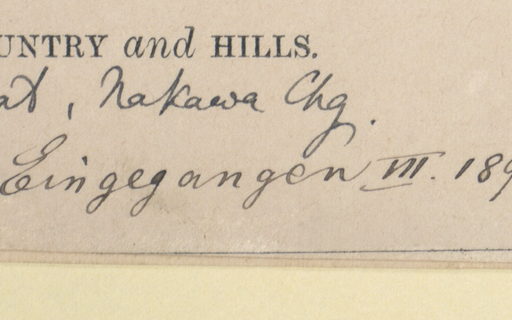 UNTRY and HILLS.
at, Nakawa Chg.
Eingegangen III. 189